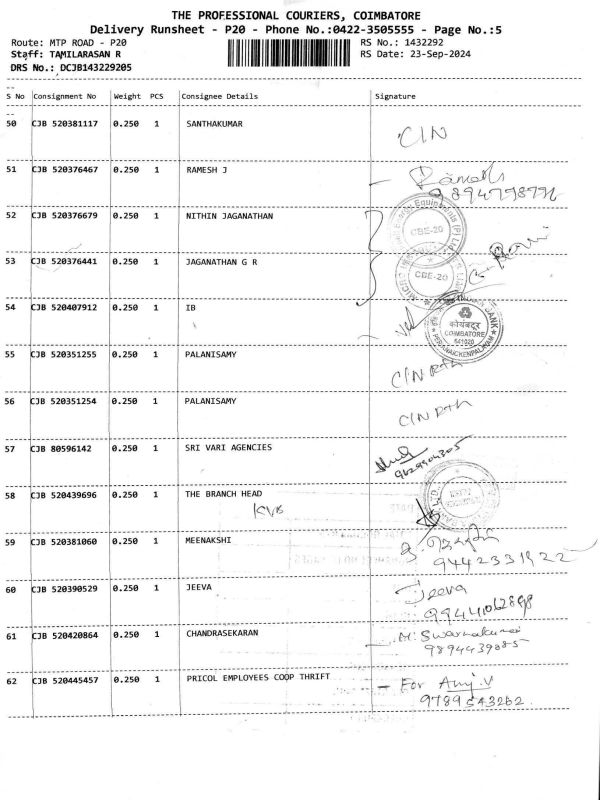 THE PROFESSIONAL COURIERS, COIMBATORE
Delivery Runsheet - P20 - Phone No.:0422-3505555 - Page No.:5
Route: MTP ROAD - P20 RS No.: 1432292
Staff: TAMILARASAN R RS Date: 23-Sep-2024
DRS No.: DCJB143229205
S No Consignment No Weight PCS Consignee Details Signature
50 CJB 520381117 0.250 1 SANTHAKUMAR
C/N
51 CJB 520376467 0.250 1 RAMESH J
52 CJB 520376679 0.250 1 NITHIN JAGANATHAN
CBE-20
53 CJB 520376441 0.250 1 JAGANATHAN G R
CBE-20
54 CJB 520407912 0.250 1 IB
कोयंबटूर
COIMBATORE
641020
PERIANAICKENPALAYAM
55 CJB 520351255 0.250 1 PALANISAMY
C/N R+h
56 CJB 520351254 0.250 1 PALANISAMY
C/N R+h
57 CJB 80596142 0.250 1 SRI VARI AGENCIES
58 CJB 520439696 0.250 1 THE BRANCH HEAD
KVB
59 CJB 520381060 0.250 1 MEENAKSHI
9442331922
60 CJB 520390529 0.250 1 JEEVA
Jeeva
61 CJB 520420864 0.250 1 CHANDRASEKARAN
62 CJB 520445457 0.250 1 PRICOL EMPLOYEES COOP THRIFT
For
9789543262